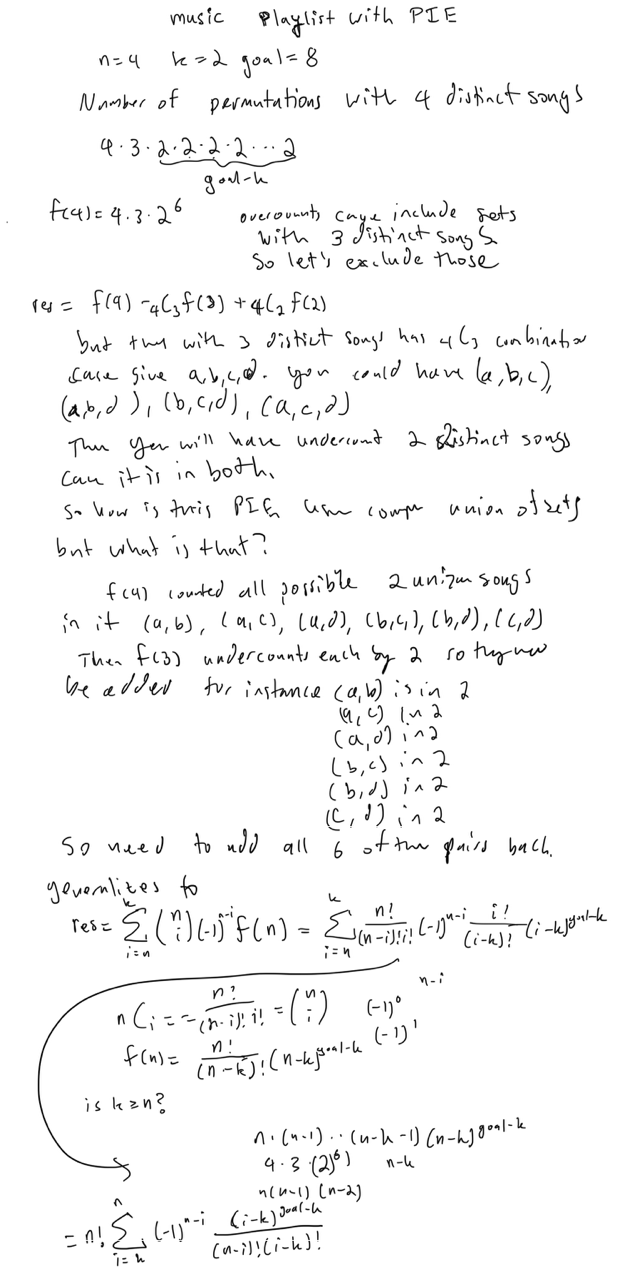 music Playlist with PIE
n=4 k=2 goal=8
Number of permutations with 4 distinct songs
4·3·2·2·2·2···2
goal-k
f(4)=4·3·2^6 overcounts cause include sets
with 3 distinct songs
So let's exclude those
res = f(4) - 4C3 f(3) + 4C2 f(2)
but this with 3 distict songs has 4C3 combination
case give a,b,c,d. you could have (a,b,c),
(a,b,d), (b,c,d), (a,c,d)
Then you will have undercount 2 distinct songs
cause it is in both.
So how is this PIE, union of sets
but what is that?
f(4) counted all possible 2 songs
in it (a,b), (a,c), (a,d), (b,c), (b,d), (c,d)
Then f(3) undercounts each by 2 so
be added for instance (a,b) is in 2
(a,c) in 2
(a,d) in 2
(b,c) in 2
(b,d) in 2
(c,d) in 2
So need to add all 6 of the pairs back.
generalizes to
res = ∑_{i=n}^{k} (n i) (-1)^{n-i} f(n) = ∑_{i=n}^{k} n!/((n-i)!i!) (-1)^{n-i} i!/(i-k)! (i-k)^{goal-k}
nCi = n!/((n-i)! i!) = (n i) (-1)^0 n-i
f(n) = n!/(n-k)! (n-k)^{goal-k} (-1)^1
is k≥n?
n·(n-1)··(n-k-1) (n-k)^{goal-k}
4·3·(2^6) n-k
n(n-1) (n-2)
= n! ∑_{i=k}^{n} (-1)^{n-i} (i-k)^{goal-k}/((n-i)!(i-k)!)